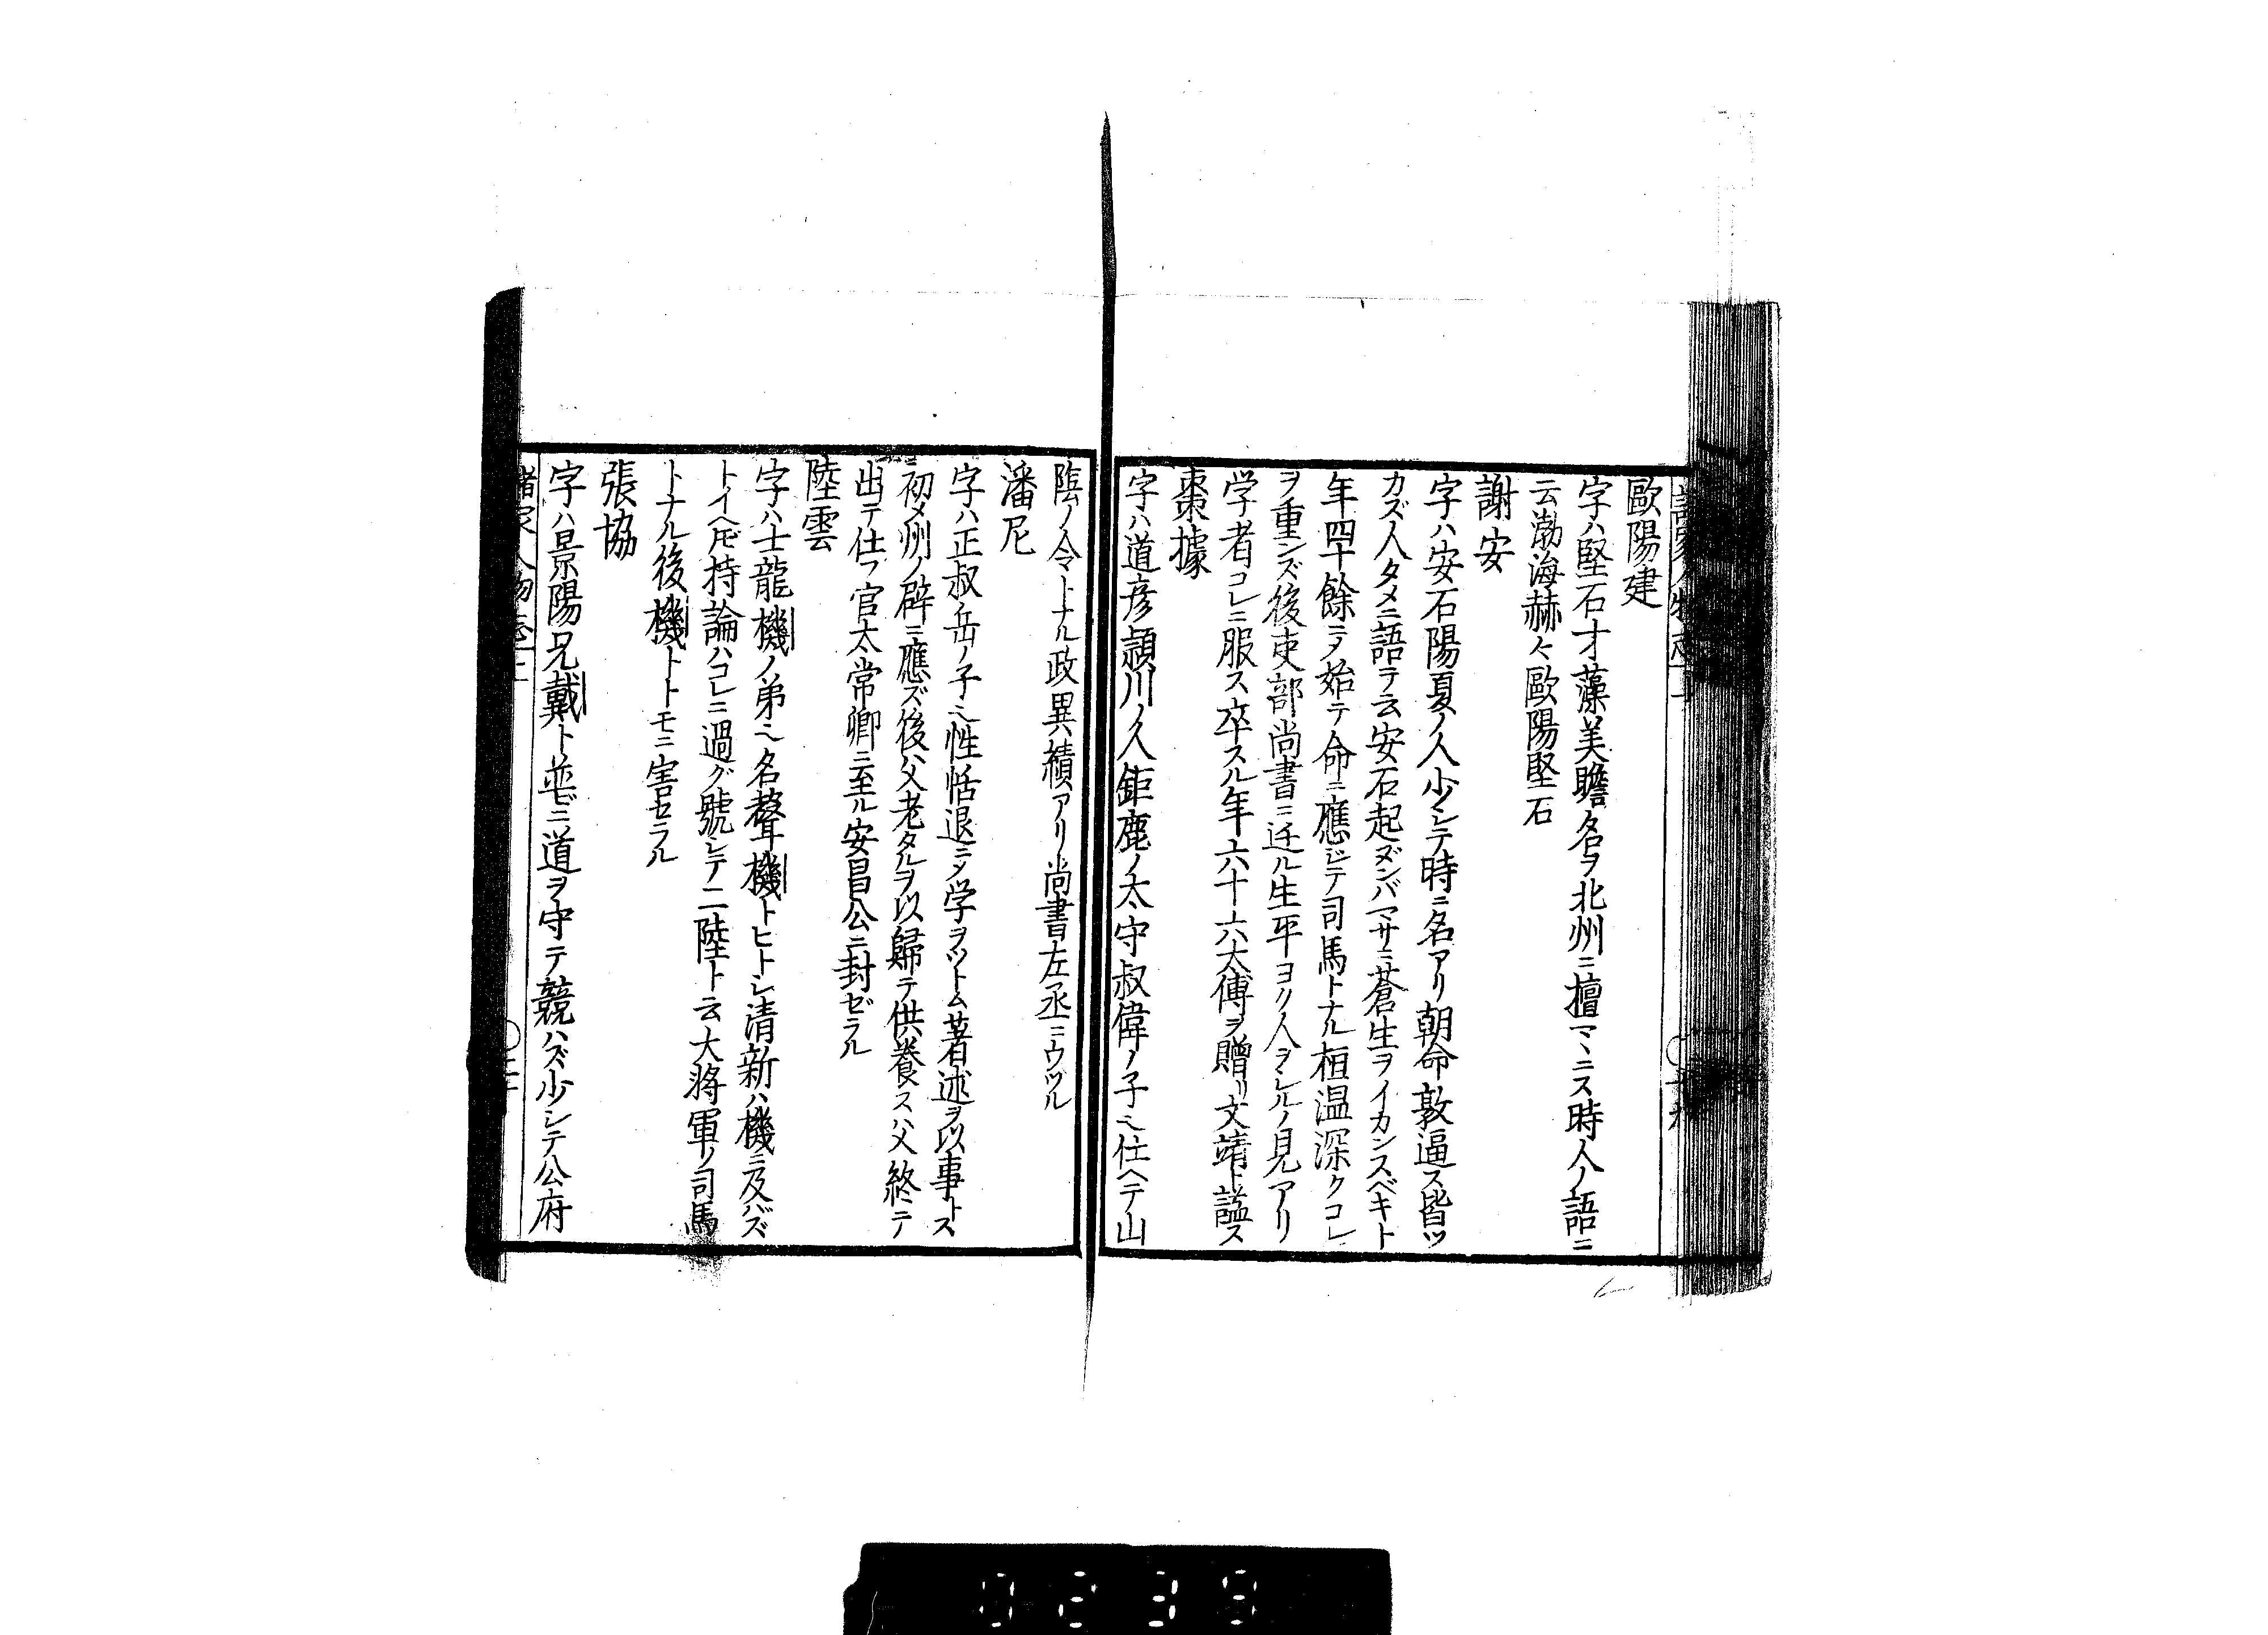 歐陽建
字ハ堅石才藻美贍名ヲ北州ニ擅マヽニス時人ノ語ニ
云渤海赫々歐陽堅石
謝安
字ハ安石陽夏ノ人少シテ時ニ名アリ朝命敦逼ス皆ツ
カズ人タメニ語テ云安石起ズンバマサニ蒼生ヲイカンスベキト
年四十餘ニメ始テ命ニ應ジテ司馬トナル桓温深クコレ
ヲ重ンズ後吏部尚書ニ迁ル生平ヨク人ヲシルノ見アリ
学者コレニ服ス卒スル年六十六大傅ヲ贈リ文靖ト謚ス
棗據
字ハ道彦潁川ノ人鉅鹿ノ太守叔偉ノ子ニ仕ヘテ山
陰ノ令トナル政異績アリ尚書左丞ニウツル
潘尼
字ハ正叔岳ノ子ニ性恬退ニメ学ヲツトム著述ヲ以事トス
初メ州ノ辟ニ應ズ後ハ父老タルヲ以歸テ供養スハ父終ニテ
出テ仕フ官太常卿ニ至ル安昌公ニ封ゼラル
陸雲
字ハ士龍機ノ弟ヘ名聲機トヒトシ清新ハ機ニ及バズ
トイヘ𪜈持論ハコレニ過グ號シテ二陸ト云大將軍ノ司馬
トナル後機トトモニ害セラル
張協
字ハ景陽兄戴ト並ビニ道ヲ守テ競ハズ少シテ公府
諸家人物志上